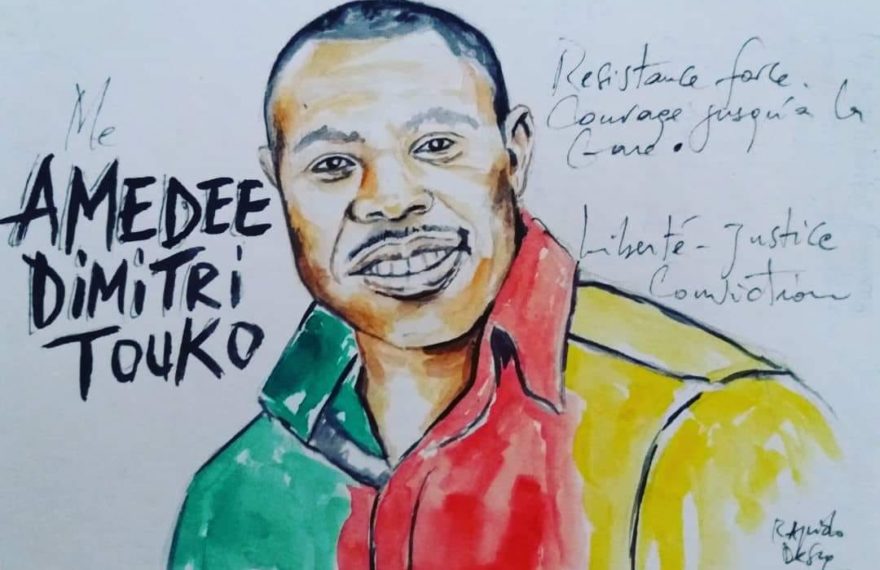 Me
AMEDEE
DiMiTRi
TOUKO
Resistance force.
Courage jusqu'à la
Liberté - Justice
Conviction